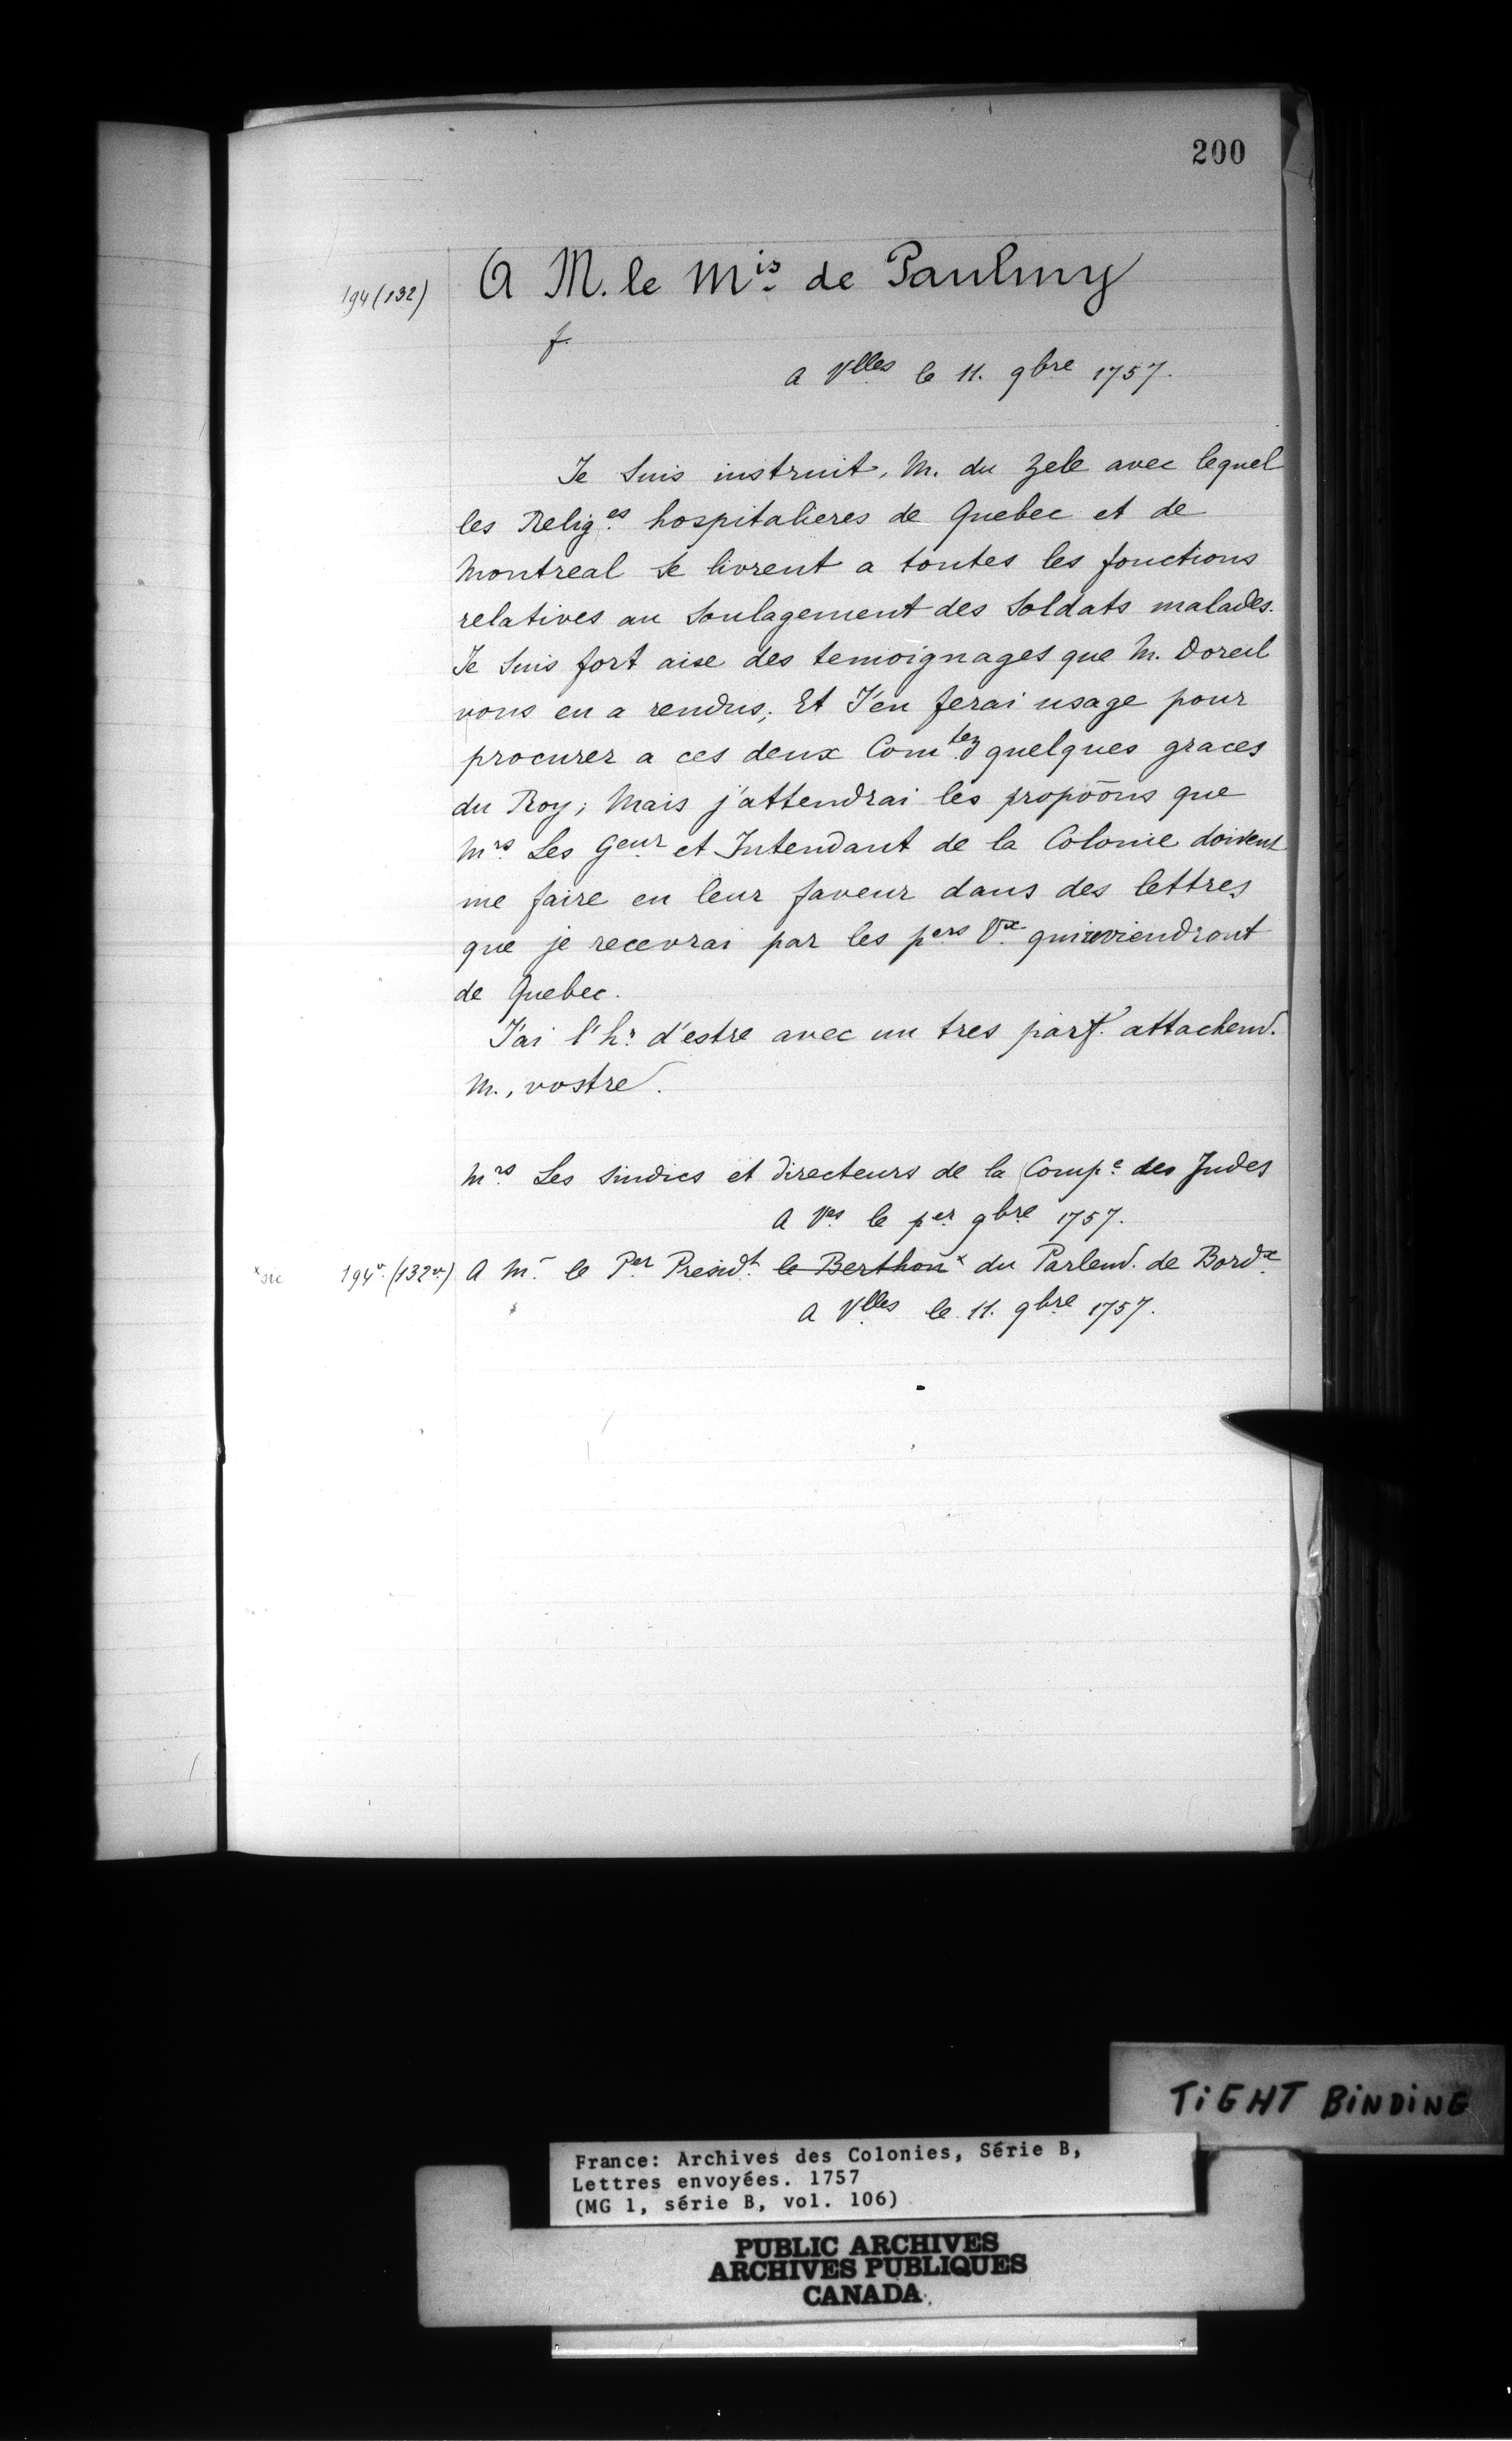 200
194 (132) A M. le Mis de Paulmy
f.
a Vlles le 11. 9bre 1757.
Je Suis instruit, M. du Zele avec lequel
les Relig.es hospitalieres de Quebec et de
Montreal Se livrent a toutes les fonctions
relatives au Soulagement des Soldats malades.
Je Suis fort aise des temoignages que M. Doreil
vous en a rendus; Et J'en ferai usage pour
procurer a ces deux Comtez quelques graces
du Roy; Mais j'attendrai les propoõns que
Mrs. Les Geur et Intendant de la Colonie doivent
me faire en leur faveur dans des lettres
que je recevrai par les pers Vx qui reviendront
de Quebec.
J'ai l'hr. d'estre avec un tres parf. attachemt.
M., vostre.
Mrs. Les Sindics et directeurs de la Compe. des Indes
A Ves le per 9bre 1757.
x sic 194v. (132vo.) A Mr. le Per Presidt. le Berthon x du Parlemt. de Bordx.
A Vlles le 11. 9bre 1757.
TiGHT BiNDiNG
France: Archives des Colonies, Série B,
Lettres envoyées. 1757
(MG 1, série B, vol. 106)
PUBLIC ARCHIVES
ARCHIVES PUBLIQUES
CANADA